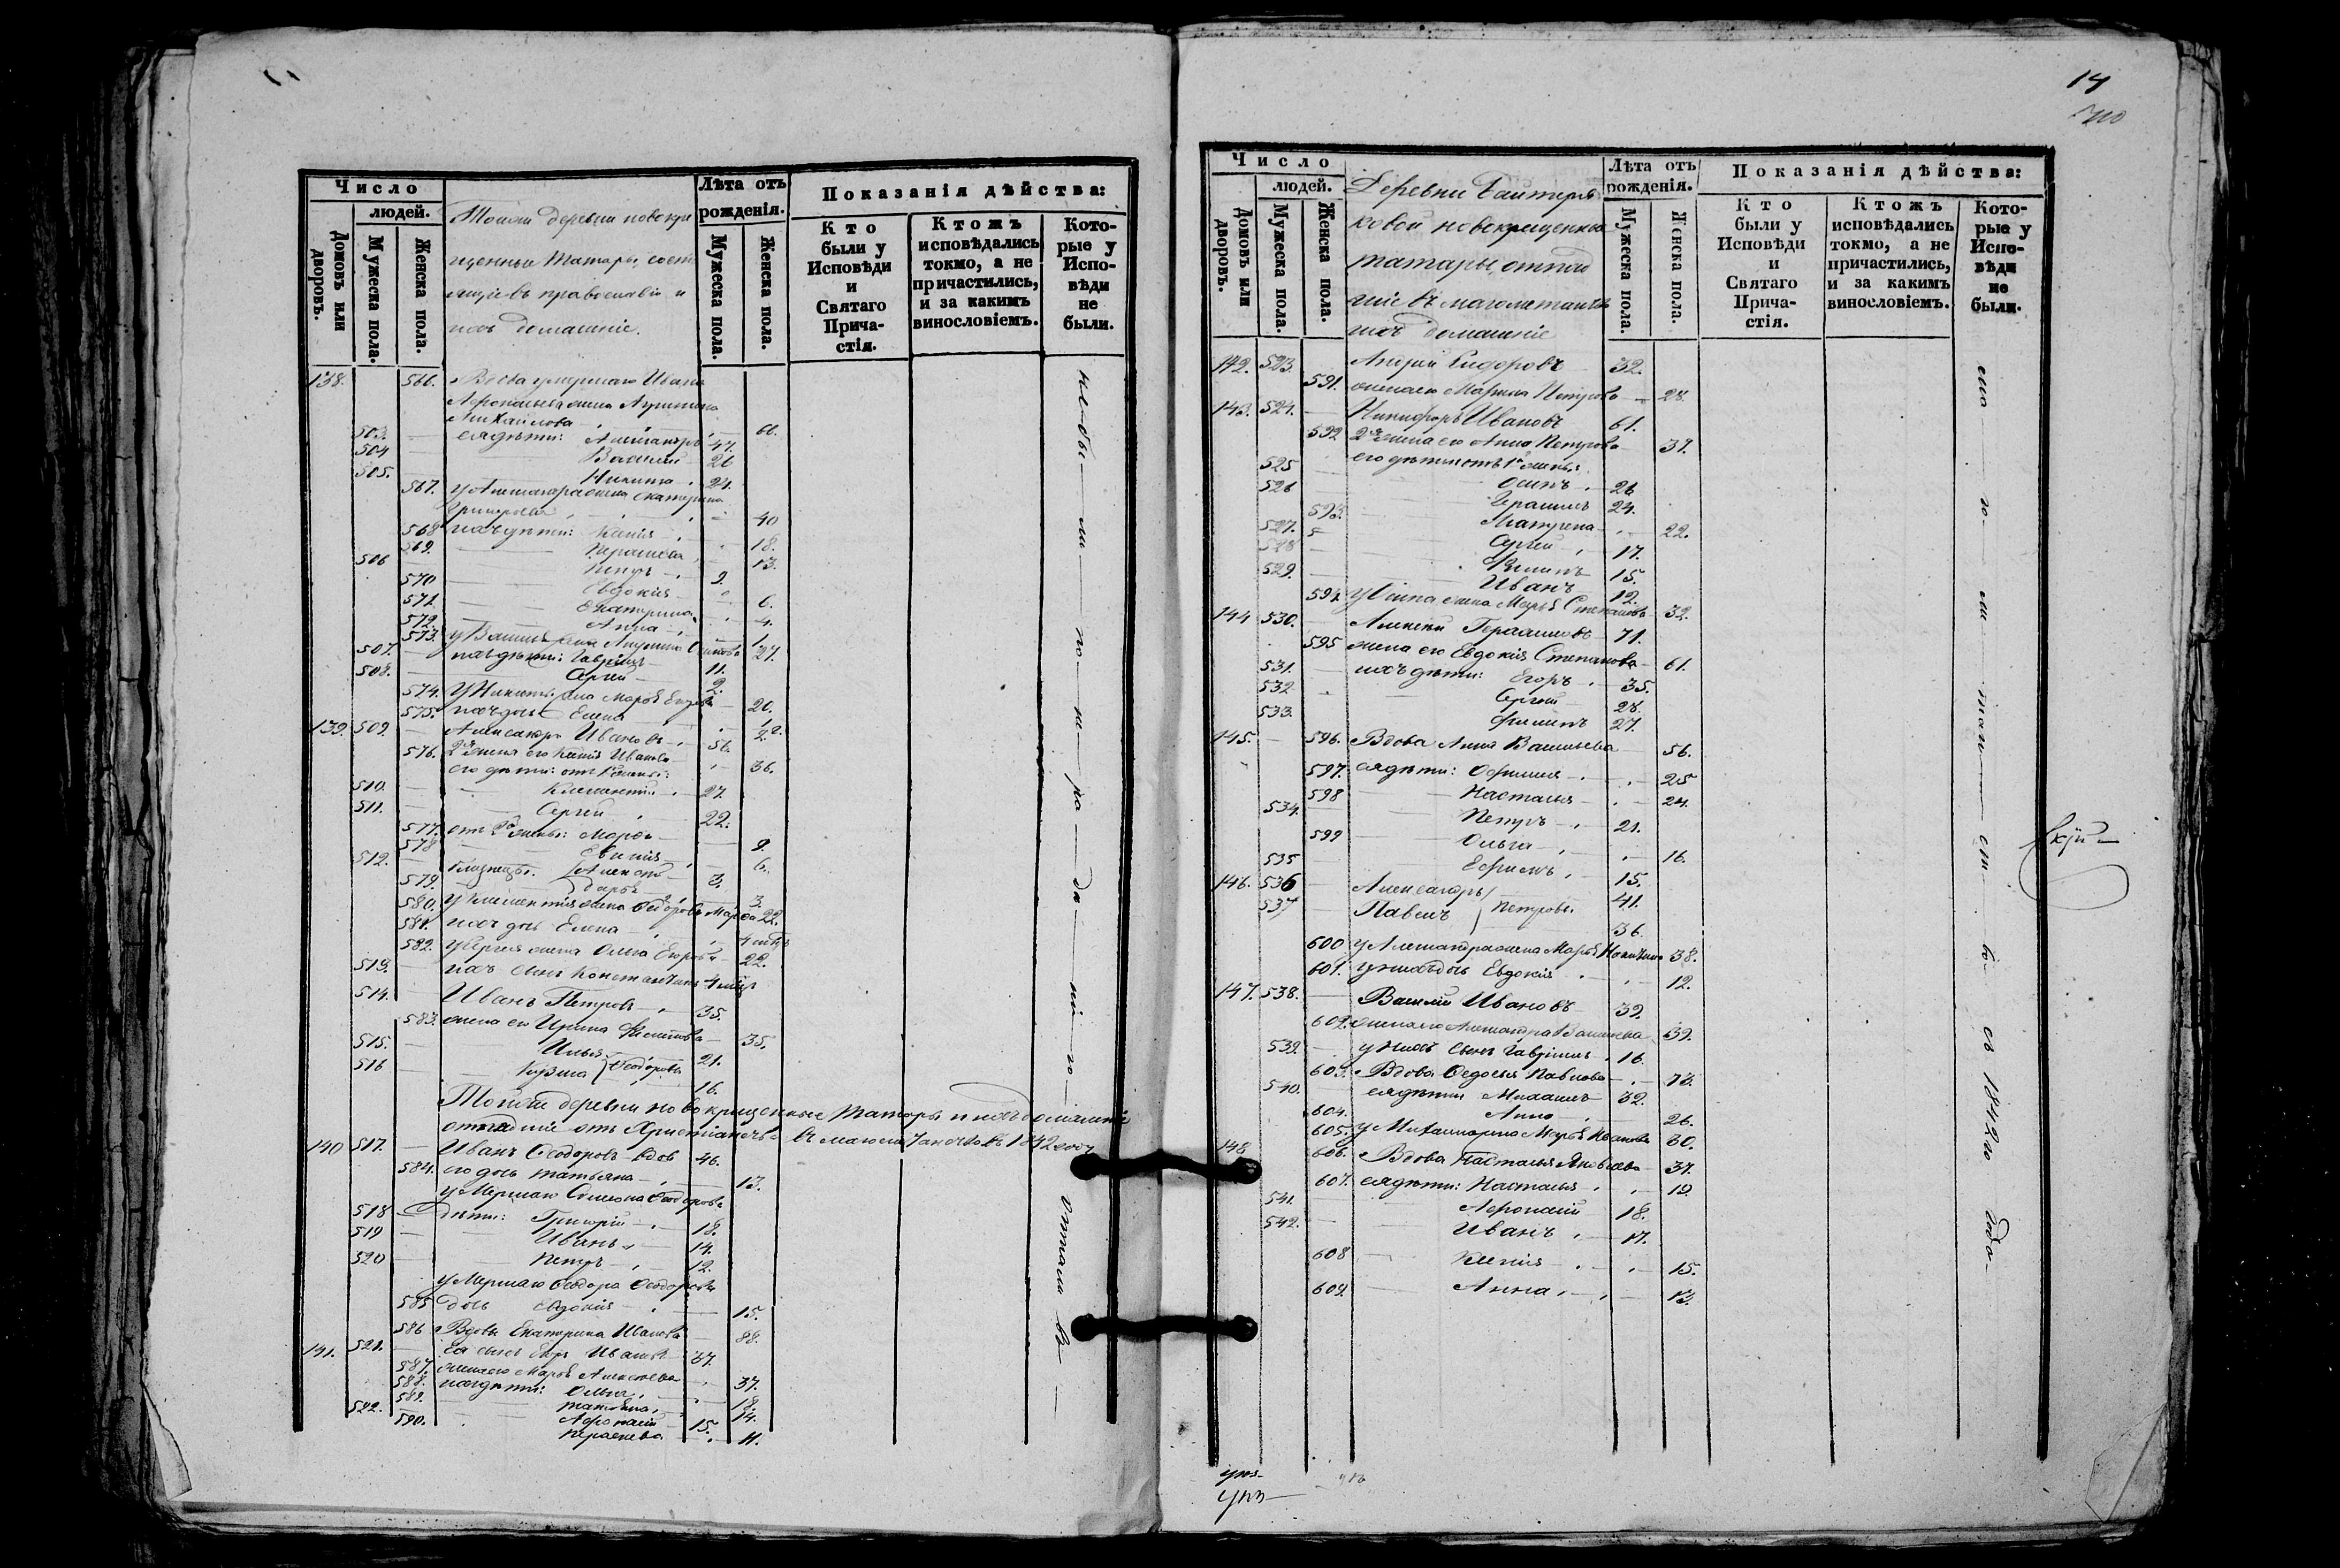 Число
людей.
Домовъ или дворовъ.
Мужеска пола.
Женска пола.
Тойже деревни новокре
щенныя Татары, состо
ящіе въ православіи и
ихъ домашніе.
Лѣта отъ рожденія.
Мужеска пола.
Женска пола.
Показанія дѣйства:
Кто были у Исповѣди и Святаго Причастія.
Ктожъ исповѣдались токмо, а не причастились, и за какимъ винословіемъ.
Которые у Исповѣди не были.
138. 566. Вдова умершаго Ивана
Афонасьева жена
Михайлова 66.
503. ея дѣти: Александръ 47.
504 Василий 26
505. Никита 24.
567. у Александра жена Екатерина
Григорьева 40
568 ихъ дѣти: Ксенія 18.
569. Парасковa 13.
506 Петръ 9.
570 Евдокія 6.
571 Екатерина 4.
572. Анна 1
573. у Василья жена Осипова 27.
507. ихъ дѣти: Гаврiилъ 11.
508. Сергей 2.
574. У Никиты жена Марѳа 20.
575. ихъ дочь Елена
139. 509. Александръ Ивановъ 56.
576. 2я жена его Ксенія Иванова 36.
его дѣти: отъ 1й жены:
510. Климентій 27.
511. Сергей 22.
577. отъ 2й жены: Марѳа 9.
578 Евгенія 6.
512. близнецы: Алексѣй 3.
579. Дарья 3.
580. у Климентія жена Ѳедорова Марѳа 22.
581. ихъ дочь Елена
582. у Сергея жена Ольга Егорова 22.
513. ихъ сынъ Константинъ
514. Иванъ Петровъ 35.
583. жена его Ирина Филипова 35.
515. Илья 21.
516 Кузма Ѳеодоровы 16.
Тойже деревни новокрещенные Татары и ихъ домашніе
отпадшіе отъ Христіанства въ 1842 году
140 517. Иванъ Ѳеодоровъ вдов 46.
584. его дочь Татьяна 13.
умершаго Семіона Ѳеодорова
518 дѣти: Григорій 18.
519 Иванъ 14.
520 Петръ 12.
умершаго Ѳеодора Ѳеодорова
585 дочь Евдокія 15.
586 Вдова Екатерина Иванова 88.
141. 521. Ея сынъ Егоръ Ивановъ 37.
587. жена его Марѳа Алексѣева 37.
588. ихъ дѣти: Ольга 18.
589. Татьяна 14.
522. Афонасій 15.
590. Парасковa 11.
Отпали въ
14
Число
людей.
Домовъ или дворовъ.
Мужеска пола.
Женска пола.
Деревни Байтеря
ковой новокрещенныя
татары, отпад
шіе въ магометанство
ихъ домашніе
Лѣта отъ рожденія.
Мужеска пола.
Женска пола.
Показанія дѣйства:
Кто были у Исповѣди и Святаго Причастія.
Ктожъ исповѣдались токмо, а не причастились, и за какимъ винословіемъ.
Которые у Исповѣди не были.
142. 523. Андрей Сидоровъ 32.
591. жена его Марина Петрова 28.
143. 524. Никифоръ Ивановъ 61.
592 2я жена его Анна Петрова 37.
его дѣти отъ 1й жены:
525 Осипъ 26
526 Герасимъ 24.
593. Матрена 22.
527. Сергей 17.
528 Филипъ 15.
529. Иванъ 12.
594 у Осипа жена Марѳа Степанова 32.
144 530. Алексѣй Герасимовъ 71.
595 жена его Евдокія Степанова 61.
531. ихъ дѣти: Егоръ 35.
532 Сергей 28.
533. Филипъ 27.
145. 596. Вдова Анна Васильева 56.
597. ея дѣти: Офимия 25
598 Настасья 24.
534. Петръ 21.
599 Ольга 16.
535 Ефимъ 15.
146. 536 Александръ 41.
537 Павелъ Петровы 36.
600 у Александра жена Марѳа 38.
601. у нихъ дочь Евдокія 12.
147. 538. Василій Ивановъ 39.
602. жена его Александра Васильева 39.
539. у нихъ сынъ Гавріилъ 16.
603. Вдова Ѳедосья Павлова 73.
540. ея дѣти Михаилъ 32.
604. Анна 26.
605. у Михаила жена Марѳа Иванова 30.
148 606. Вдова Настасья Яковлева 37.
607. ея дѣти: Настасья 19.
541. Афонасій 18.
542. Иванъ 17.
608 Ксенія 15.
609. Анна 13.
съ 1842го года